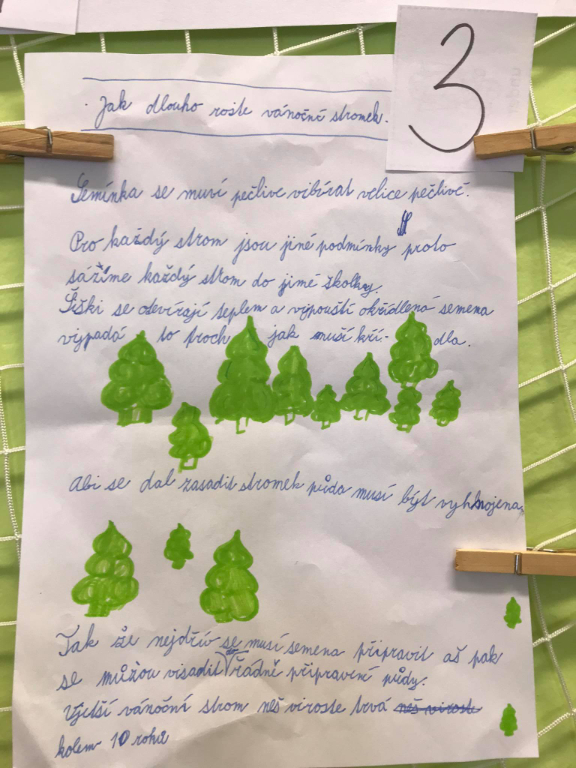 3
Jak dlouho roste vánoční stromek.
Semínka se musí pečlive vibírat velice pečlivě.
Pro každý strom jsou jiné podmínky proto
sázíme každý strom do jimé školky.
Šiški se otevírají teplem a vypouští okřídlená semena
vijpadá to troch jak muší kří- dla.
Abi se dal zasadit stromek půda musí být vyhnojena,
Tak že nejdřív se musí semena připravit až pak
se můžou visadit řádně připravení půdy.
Vjetší vánoční strom než viroste trvá než viroste
kolem 10 roků